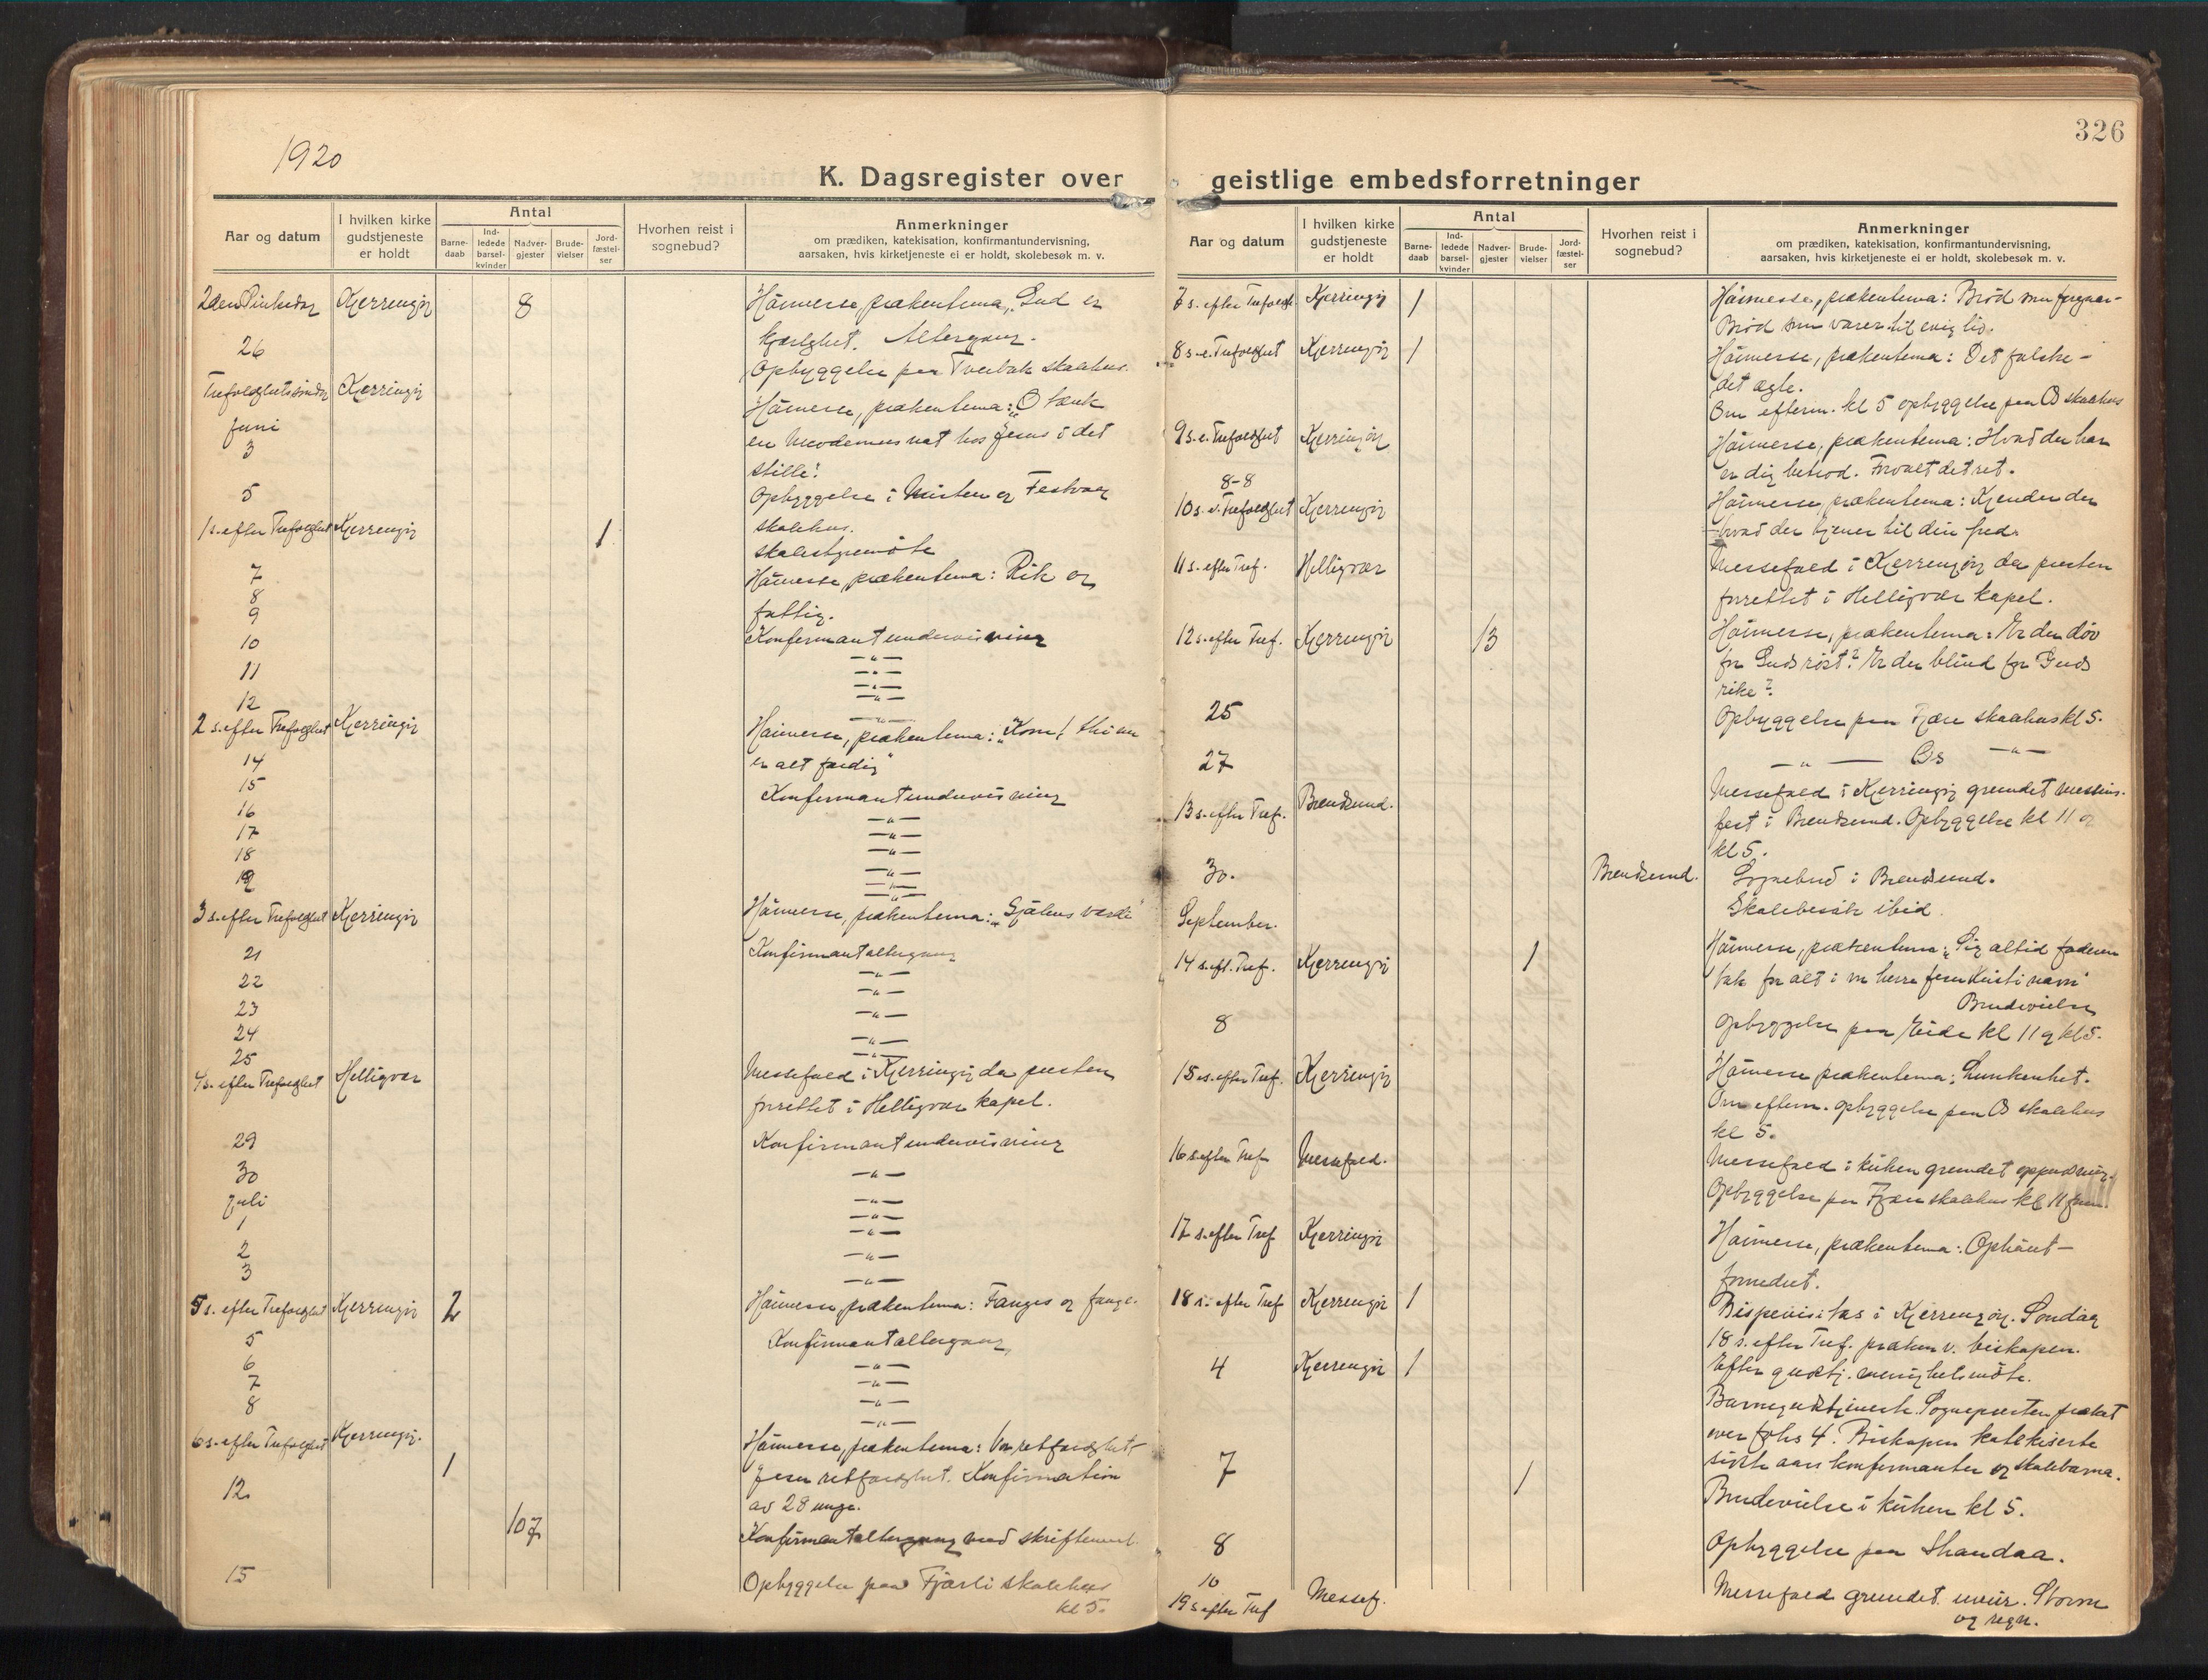 1920
K. Dagsregister over
Aar og datum
I hvilken kirke
gudstjeneste
er holdt
Antal
Barne-
daab
Ind-
ledede
barsel-
kvinder
Nadver-
gjester
Brude-
vielser
Jord-
fæstel-
ser
Hvorhen reist i
sognebud?
Anmerkninger
om prædiken, katekisation, konfirmantundervisning,
aarsaken, hvis kirketjeneste ei er holdt, skolebesøk m. v.
2den Pinsedag Kjerringøy 8 Høimesse, prækentema, "Gud er
kjærlighet. Altergang.
26 Opbyggelse paa Tverbak skolehus.
Trefoldighetssøndag Kjerringøy Høimesse, prækentema: "O tænk
Juni en Nicodemus nat hos Jesus i det
3 stille!
Opbyggelse i Misten og Festvaag
5 skolehus.
1 s. efter Trefoldighet Kjerringøy 1
skolestyremøte
7 Høimesse, prækentema: Rik og
8 fattig.
9
10 Konfirmantundervisning
11 — " —
— " —
— " —
12 — " —
— " —
2 s. efter Trefoldighet Kjerringøy Høimesse, prækentema: "Kom! thi nu
14 er alt færdig"
15 Konfirmantundervisning
16 — " —
17 — " —
18 — " —
19 — " —
— " —
3 s. efter Trefoldighet Kjerringøy Høimesse, prækentema: "Sjælens værdi"
21 Konfirmantaltergang
22 — " —
23 — " —
24 — " —
25 — " —
4 s. efter Trefoldighet Helligvær Messefald i Kjerringøy da presten
forrettet i Helligvær kapel.
29 Konfirmantundervisning
30 — " —
Juli — " —
1 — " —
2 — " —
3 — " —
— " —
5 s. efter Trefoldighet Kjerringøy 2 Høimesse, prækentema: Fanges og fange.
5 Konfirmantaltergang
6 — " —
7 — " —
8 — " —
— " —
6 s. efter Trefoldighet Kjerringøy. Høimesse, prækentema: Vor retfærdighet –
1 Jesu retfærdighet. Konfirmation
12. av 28 unge.
107 Konfirmantaltergang med skriftemaal.
15 Opbyggelse paa Fjærli skolehus
kl 5.
326
geistlige embedsforretninger
Aar og datum
I hvilken kirke
gudstjeneste
er holdt
Antal
Barne-
daab
Ind-
ledede
barsel-
kvinder
Nadver-
gjester
Brude-
vielser
Jord-
fæstel-
ser
Hvorhen reist i
sognebud?
Anmerkninger
om prædiken, katekisation, konfirmantundervisning,
aarsaken, hvis kirketjeneste ei er holdt, skolebesøk m. v.
7 s. efter Trefoldigh. Kjerringøy 1 Høimesse, prækentema: Brød som forgaar –
Brød som varer til evig liv.
8 s. e. Trefoldighet Kjerringøy 1 Høimesse, prækentema: Det falske –
det ægte.
Om efterm. kl 5 opbyggelse paa Os skolehus
9 s. e. Trefoldighet Kjerringøy Høimesse, prækentema: Hvad du har
er dig betrod. Forvalt det ret.
8-8
10 s. e. Trefoldighet Kjerringøy Høimesse, prækentema: Kjender du
hvad der tjener til din fred.
11 s. efter Tref. Helligvær Messefald i Kjerringøy da presten
forrettet i Helligvær kapel.
12 s. efter Tref. Kjerringøy 13 Høimesse, prækentema: Er du døv
for Guds røst? Er du blind for Guds
rike?
25 Opbyggelse paa Fjære skolehus kl 5.
27 — " — Os — " —
13 s. efter Tref. Brendsund. Messefald i Kjerringøy grundet missions-
fest i Brendsund. Opbyggelse kl 11 og
kl 5.
30. Brendsund. Sognebud i Brendsund.
Skolebesøk ibid.
September.
14 s. eft. Tref. Kjerringøy 1 Høimesse, prækentema: "Sig altid faderen
tak for alt i vor herre Jesu Kristi navn"
Brudevielse
8 Opbyggelse paa Eide kl 11 og kl 5.
15 s. efter Tref. Kjerringøy Høimesse prækentema: Lunkenhet.
Om efterm. opbyggelse paa Os skolehus
kl 5.
16 s. efter Tref Messefald. Messefald i kirken grundet oppudsning.
Opbyggelse paa Fjære skolehus kl 11 form.
17 s. efter Tref Kjerringøy Høimesse, prækentema: Ophøiet –
fornedret.
18 s. efter Tref Kjerringøy 1 Bispevisitas i Kjerringøy. Søndag
18 s. efter Tref. præken v. biskopen.
Efter gudstj. menighetsmøte.
4 Kjerringøy 1
Barnegudstjeneste. Sognepresten præket
over Johs 4. Biskopen katekiserte
sidste aars konfirmanter og skolebarna.
7 1 Brudevielse i kirken kl 5.
8 Opbyggelse paa Skandaa.
10
19 s efter Tref Messef. Messefald grundet uveir. Storm
og regn.